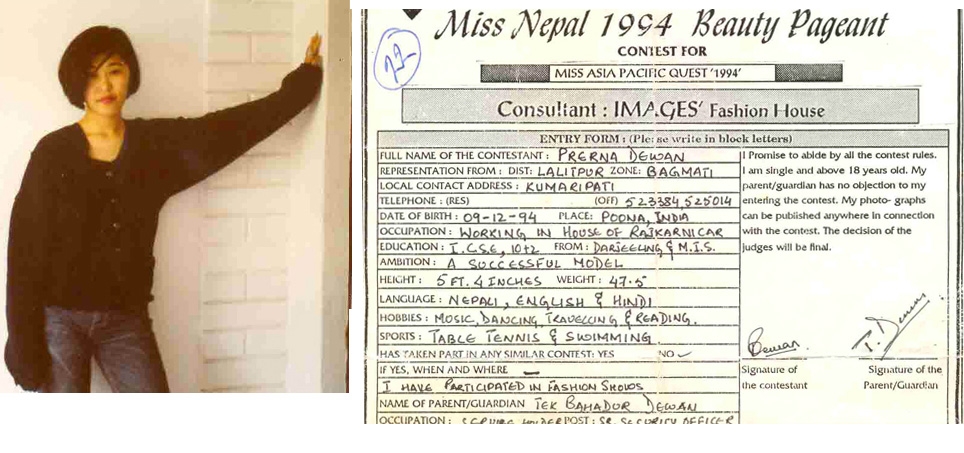 Miss Nepal 1994 Beauty Pageant
22
CONTEST FOR
MISS ASIA PACIFIC QUEST '1994'
Consultant : IMAGES' Fashion House
ENTRY FORM : (Please write in block letters)
FULL NAME OF THE CONTESTANT : PRERNA DEWAN
REPRESENTATION FROM : DIST: LALITPUR ZONE: BAGMATI
LOCAL CONTACT ADDRESS : KUMARIPATI
TELEPHONE : (RES) (OFF) 523384, 525014
DATE OF BIRTH : 09-12-94 PLACE: POONA, INDIA
OCCUPATION: WORKING IN HOUSE OF RAJKARNICAR
EDUCATION : I.C.S.E, 10+2 FROM : DARJEELING & M.I.S.
AMBITION : A SUCCESSFUL MODEL
HEIGHT : 5 FT. 4 INCHES WEIGHT : 47.5
LANGUAGE : NEPALI, ENGLISH & HINDI
HOBBIES : MUSIC, DANCING, TRAVELLING & READING.
SPORTS : TABLE TENNIS & SWIMMING
HAS TAKEN PART IN ANY SIMILAR CONTEST: YES NO ✓
IF YES, WHEN AND WHERE —
I HAVE PARTICIPATED IN FASHION SHOWS
NAME OF PARENT/GUARDIAN TEK BAHADUR DEWAN
OCCUPATION : SERVICE HOLDER POST : SR. SECURITY OFFICER
I Promise to abide by all the contest rules.
I am single and above 18 years old. My
parent/guardian has no objection to my
entering the contest. My photo- graphs
can be published anywhere in connection
with the contest. The decision of the
judges will be final.
Dewan
P. Dewan
Signature of
the contestant
Signature of the
Parent/Guardian